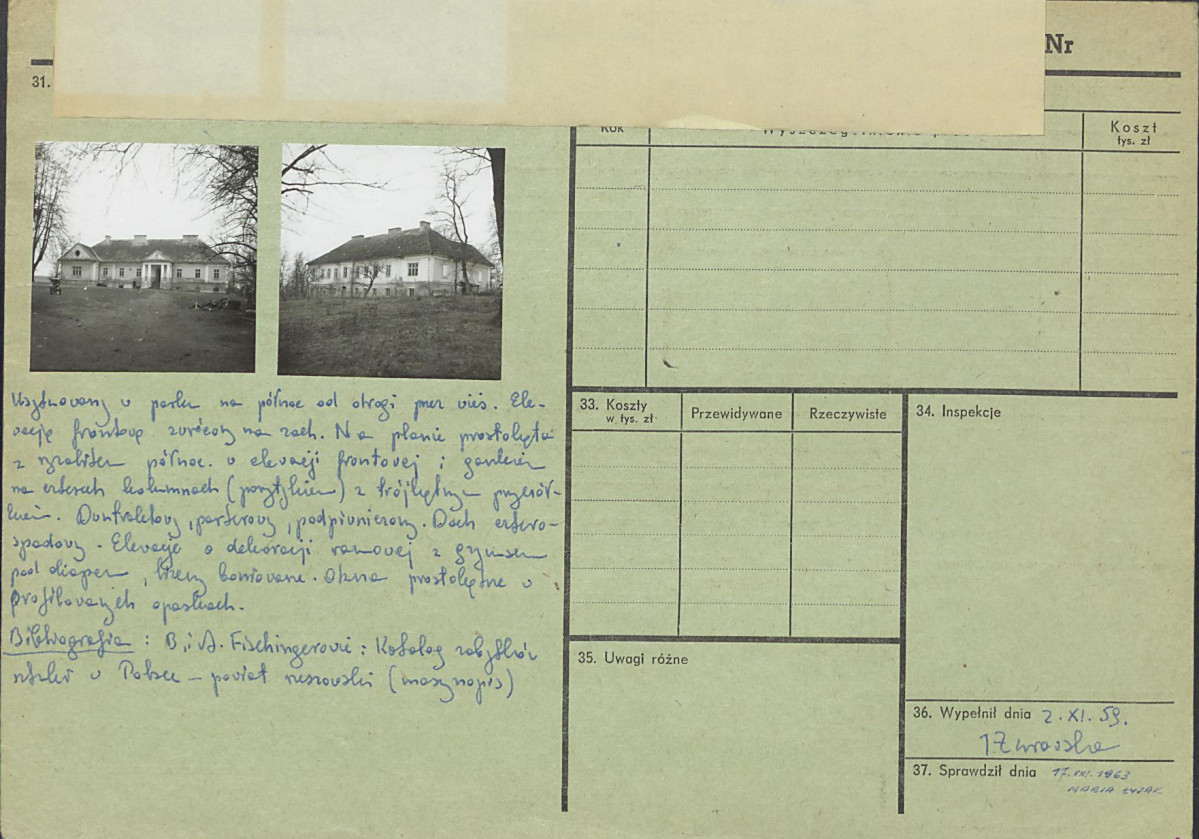 Nr
31.
Rok
Koszt
tys. zł
Usytuowany w parku na północ od drogi przez wieś. Ele-
wacją frontową zwrócony na zach. Na planie prostokąta
z ryzalitem północ. w elewacji frontowej i gankiem
na czterech kolumnach (portykiem) z trójkątnym
Dwutraktowy, parterowy, podpiwniczony. Dach cztero-
spadowy. Elewacje o dekoracji ramowej z gzymsem
pod okapem, boniowane. Okna prostokątne w
profilowanych opaskach.
Bibliografia: B. i A. Fischingerowie: Katalog zabytków
sztuki w Polsce – powiat rzeszowski (maszynopis)
33. Koszty
w tys. zł
Przewidywane
Rzeczywiste
34. Inspekcje
35. Uwagi różne
36. Wypełnił dnia 2.XI.59.
37. Sprawdził dnia 1963
MARIA